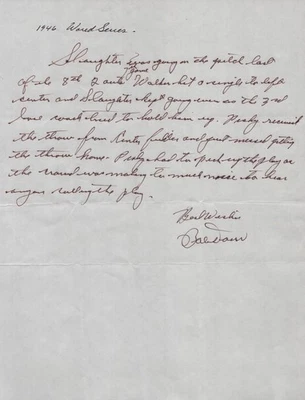 1946 Word Series.
Slaughter was going on the pitch last
from
of the 8th 2 outs Walker hit a single to left
center and Slaughter kept going even as the 3rd
base coach tried to hold him up. Pesky received
the throw from Center fielder and just missed getting
the throw home. Pesky had to pick up the play as
the crowd was making to much noise to hear
anyone calling the play.
Best Wishes